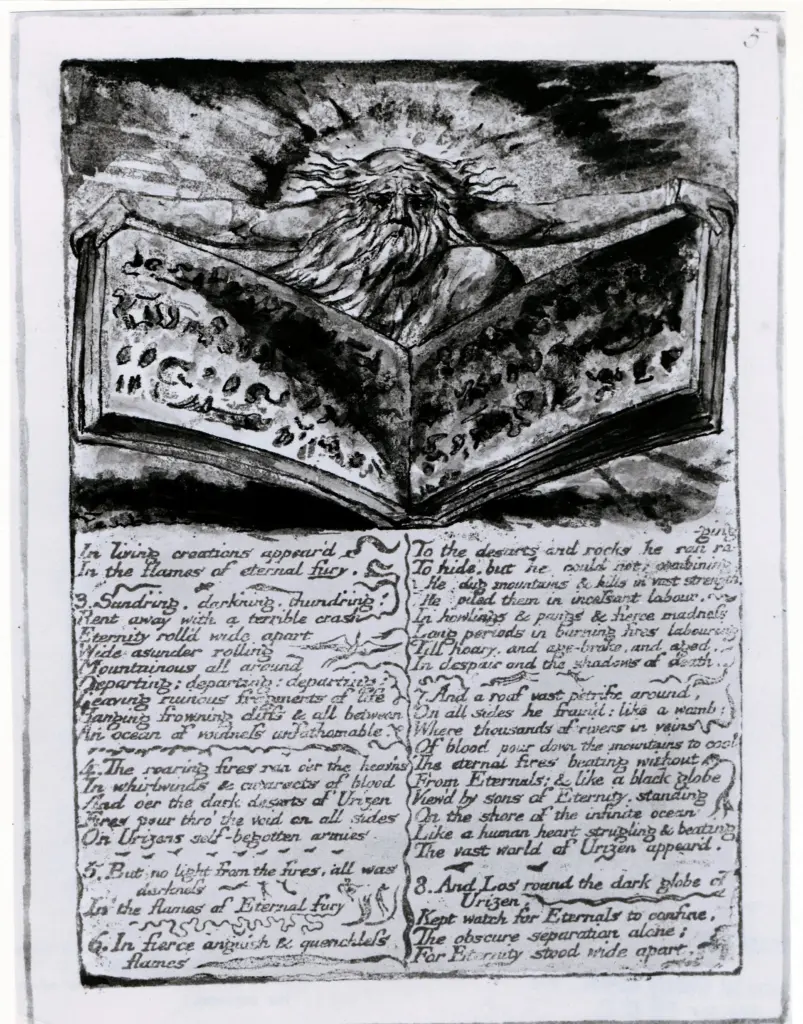 5
In living creations appear'd
In the flames of eternal fury.
3. Sundring, darkning, thundring!
Rent away with a terrible crash
Eternity roll'd wide apart
Wide asunder rolling
Mountainous all around
Departing; departing: departing:
Leaving ruinous fragments of life
Hanging frowning cliffs & all between
An ocean of voidness unfathomable.
4. The roaring fires ran o'er the heavns
In whirlwinds & cataracts of blood
And o'er the dark desarts of Urizen
Fires pour thro' the void on all sides
On Urizens self-begotten armies.
5. But no light from the fires, all was
darkness
In the flames of Eternal fury
6. In fierce anguish & quenchless
flames
-ging
To the desarts and rocks he ran ra-
To hide, but he could not: combining
He dug mountains & hills in vast strength,
He piled them in incessant labour,
In howlings & pangs & fierce madness
Long periods in burning fires labouring
Till hoary, and age-broke, and aged,
In despair and the shadows of death.
7. And a roof vast petrific around,
On all sides he fram'd: like a womb;
Where thousands of rivers in veins
Of blood pour down the mountains to cool
The eternal fires beating without
From Eternals; & like a black globe
View'd by sons of Eternity, standing
On the shore of the infinite ocean
Like a human heart strugling & beating
The vast world of Urizen appear'd.
8. And Los round the dark globe of
Urizen,
Kept watch for Eternals to confine,
The obscure separation alone;
For Eternity stood wide apart,